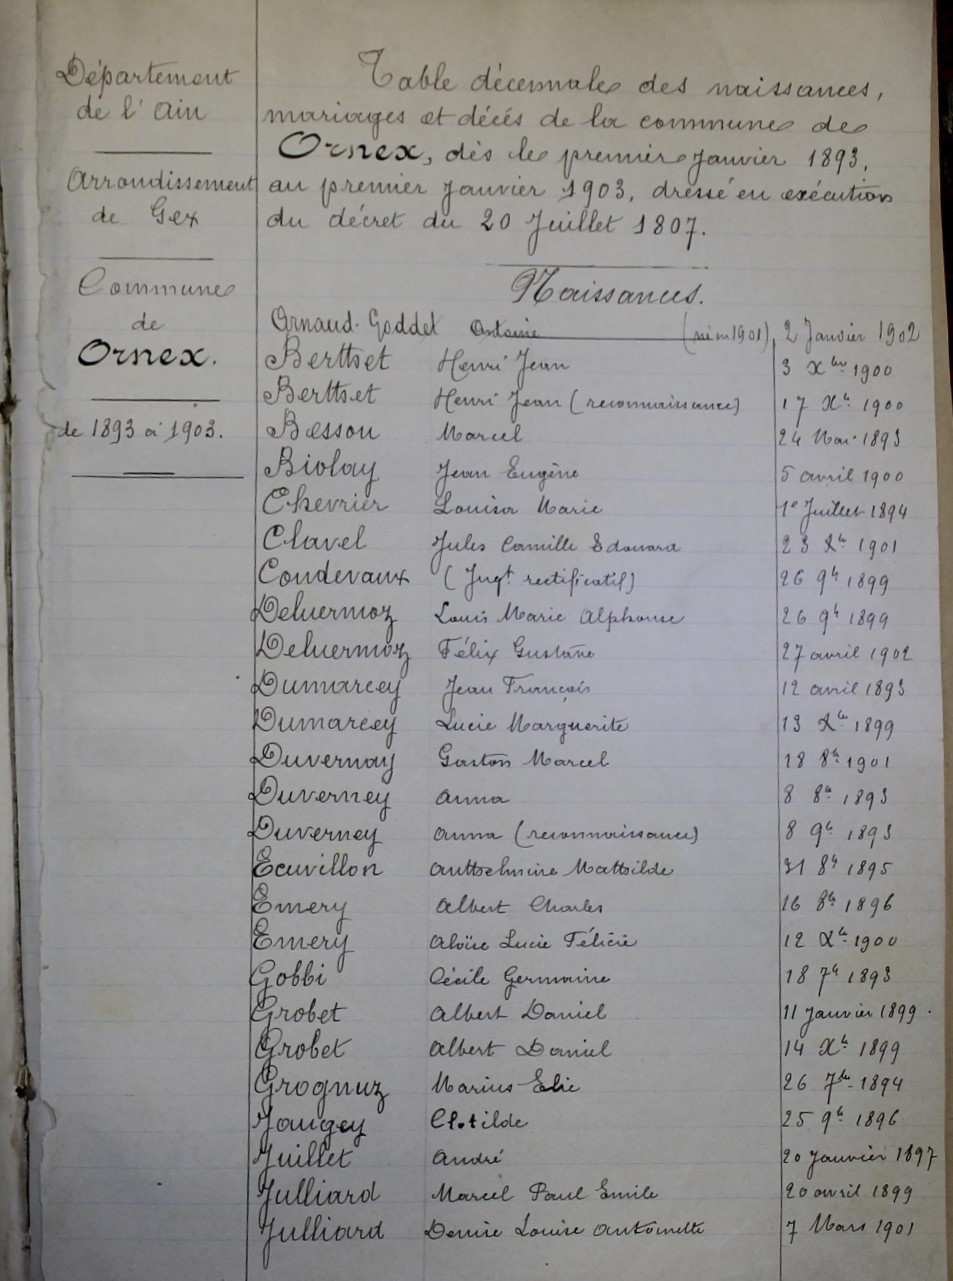 Département
de l'Ain
Arrondissement
de Gex
Commune
de
Ornex.
de 1893 à 1903.
Table décennale des naissances,
mariages et décés de la commune de
Ornex, dès le premier Janvier 1893,
au premier Janvier 1903, dressé en exécution
du décret du 20 Juillet 1807.
Naissances.
Arnaud-Goddet Antoine (né en 1901), 2 Janvier 1902
Berthet Henri Jean 3 Xbre 1900
Berthet Henri Jean (reconnaissance) 17 Xbre 1900
Besson Marcel 24 Mai 1893
Biolay Jean Eugène 5 avril 1900
Chevrier Louisa Marie 1er Juillet 1894
Clavel Jules Camille Edouard 23 Xbre 1901
Condevaux (Jugt rectificatif) 26 9bre 1899
Deluermoz Louis Marie Alphonse 26 9bre 1899
Deluermoz Félix Gustave 27 avril 1902
Dumarcey Jean François 12 avril 1893
Dumarcey Lucie Marguerite 13 Xbre 1899
Duvernay Gaston Marcel 18 8bre 1901
Duverney Anna 8 8bre 1893
Duverney Anna (reconnaissance) 8 9bre 1893
Ecuvillon Anthelmine Mathilde 31 8bre 1895
Emery Albert Charles 16 8bre 1896
Emery Aloïse Lucie Félicie 12 Xbre 1900
Gobbi Cécile Germaine 18 7bre 1893
Grobet Albert Daniel 11 Janvier 1899.
Grobet Albert Daniel 14 Xbre 1899
Grognuz Marius Elie 26 7bre 1894
Jougey Clotilde 25 9bre 1896
Juillet André 20 Janvier 1897
Julliard Marcel Paul Emile 20 avril 1899
Julliard Denise Louise Antoinette 7 Mars 1901